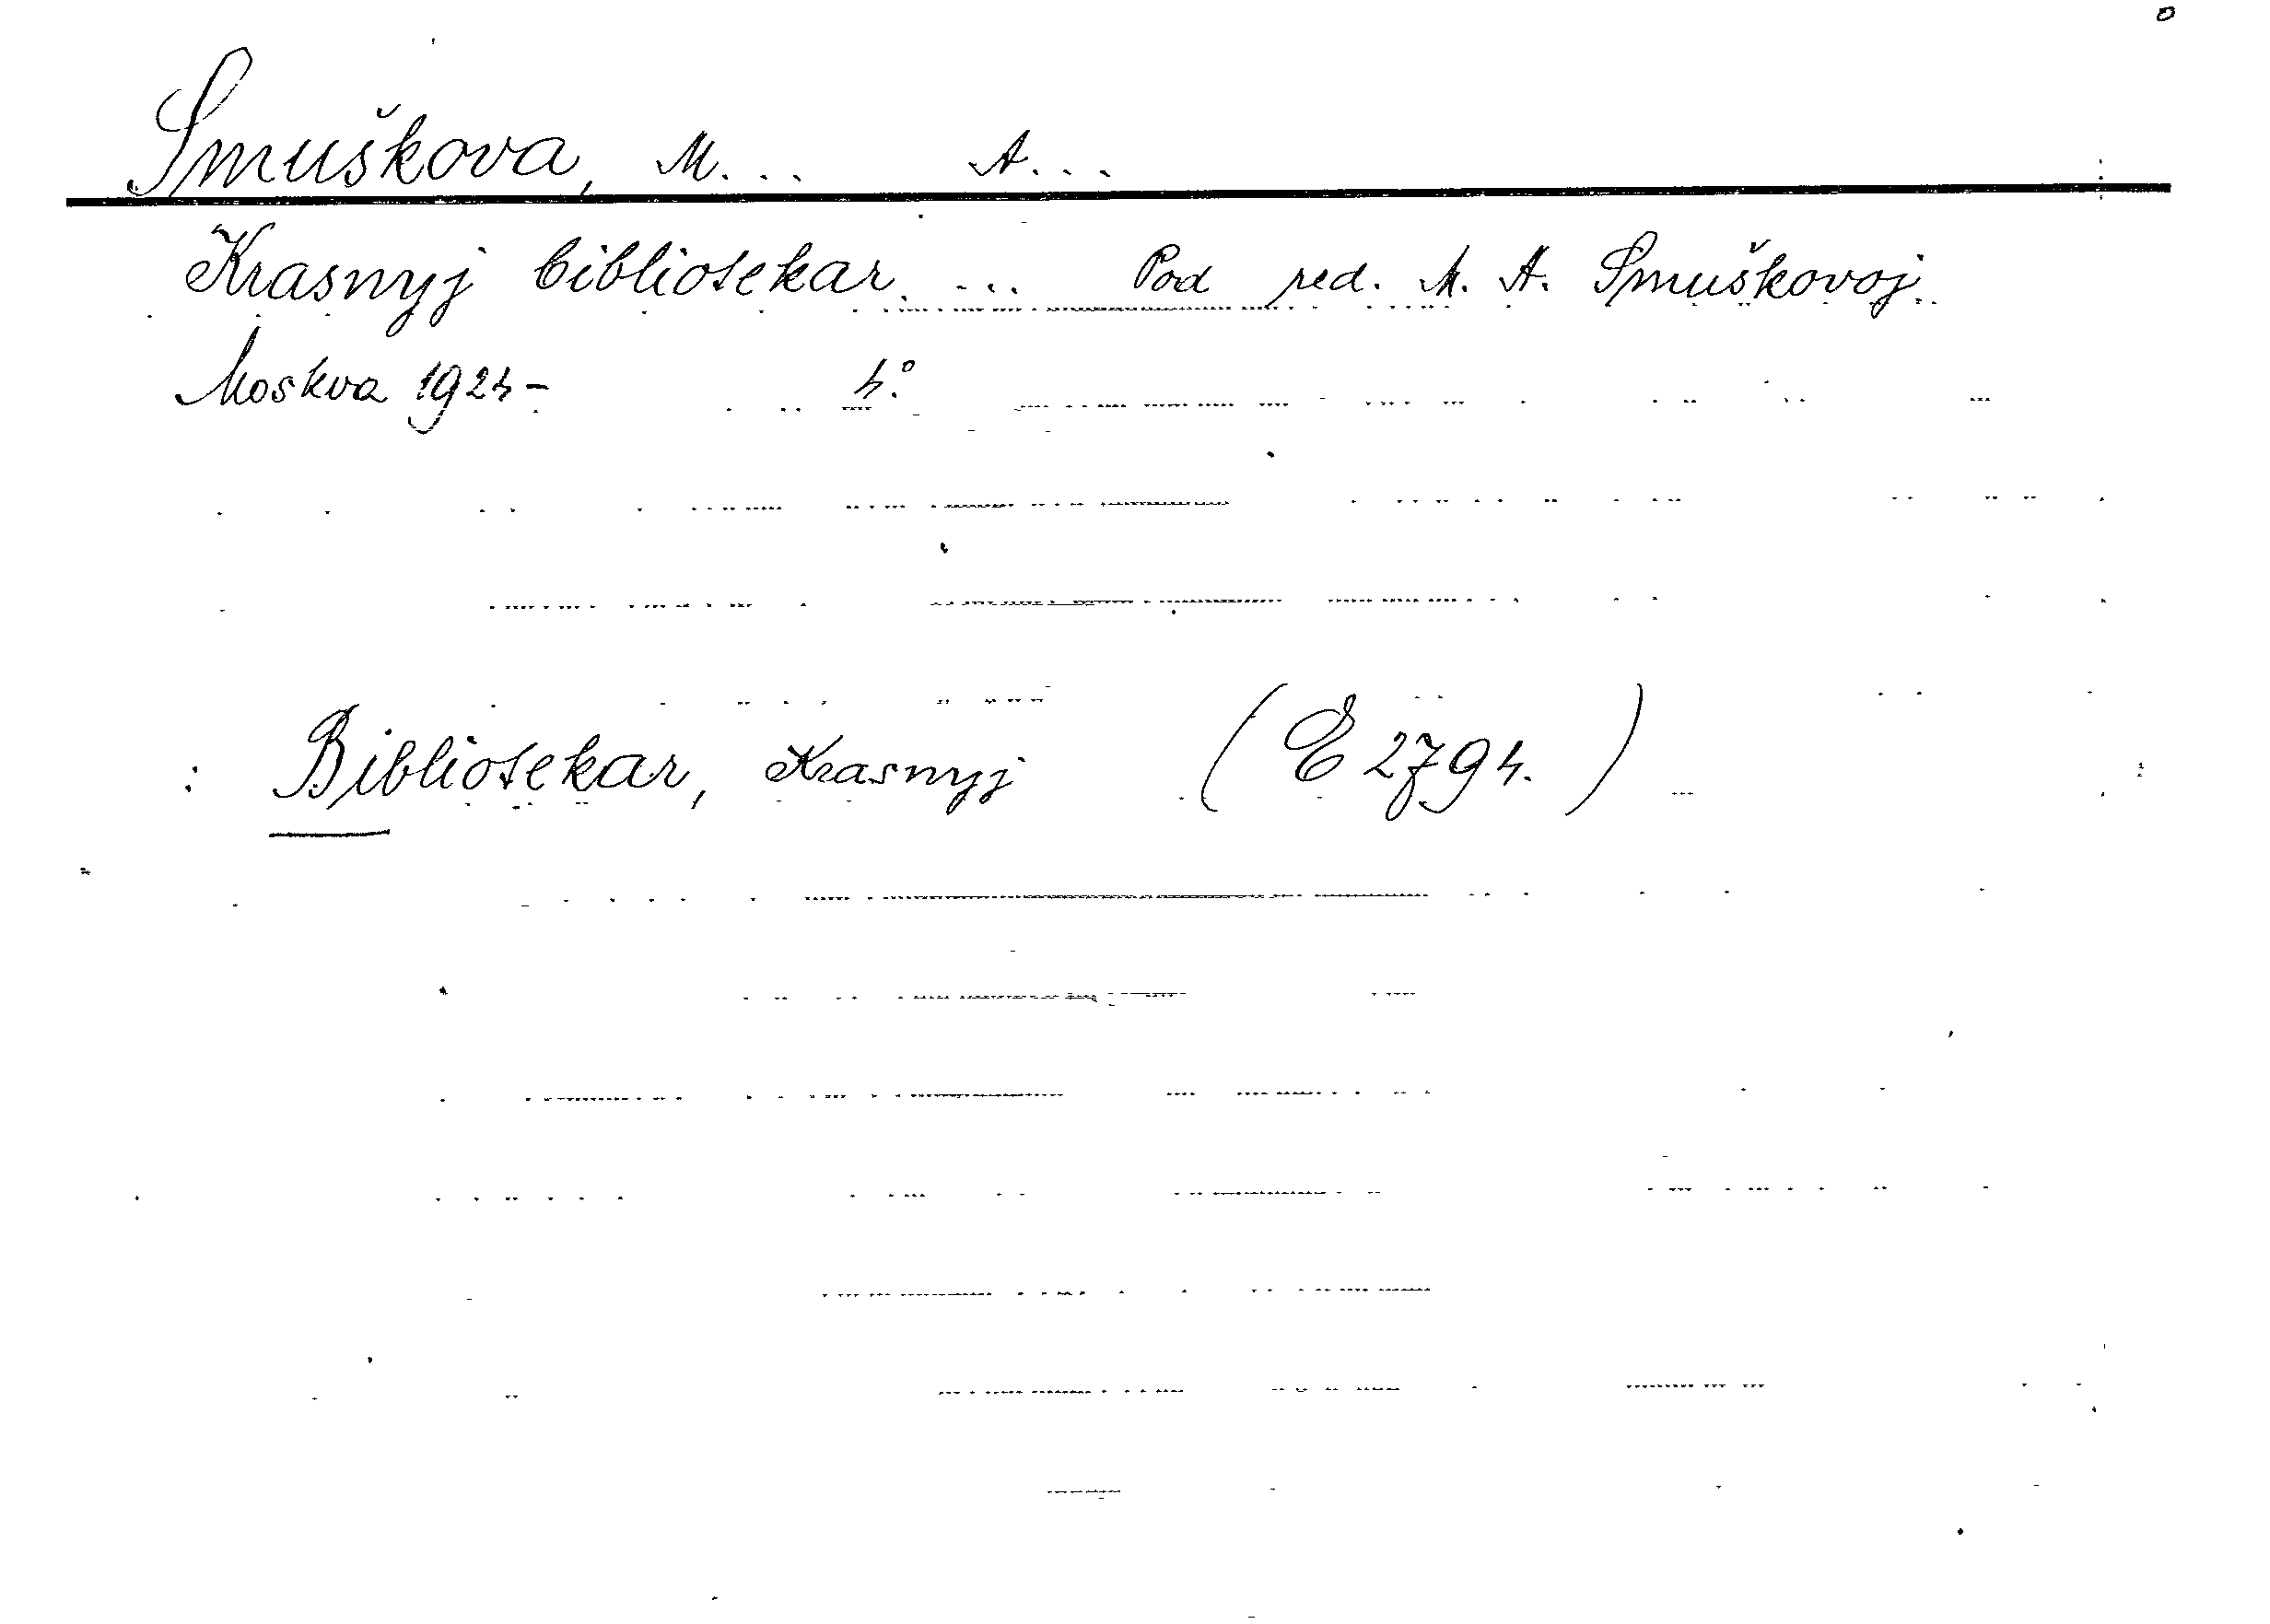 Smuškova, M... A...
Krasnyj bibliotekar. ... Pod red. M. A. Smuškovoj.
Moskva 1924- 4°.
: Bibliotekar, Krasnyj (E 2794.)